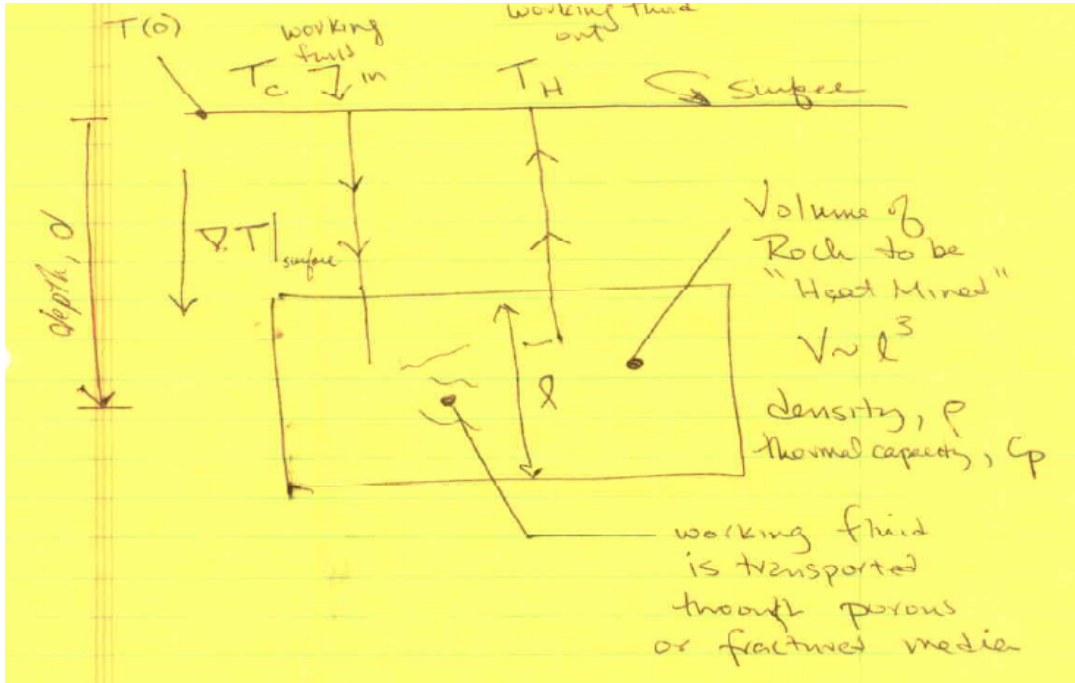 T(0)
working
fluid
in
T_C
working fluid
out
T_H
surface
depth, d
∇T|surface
Volume of
Rock to be
"Heat Mined"
V ~ l³
density, ρ
thermal capacity, Cp
l
working fluid
is transported
through porous
or fractured media